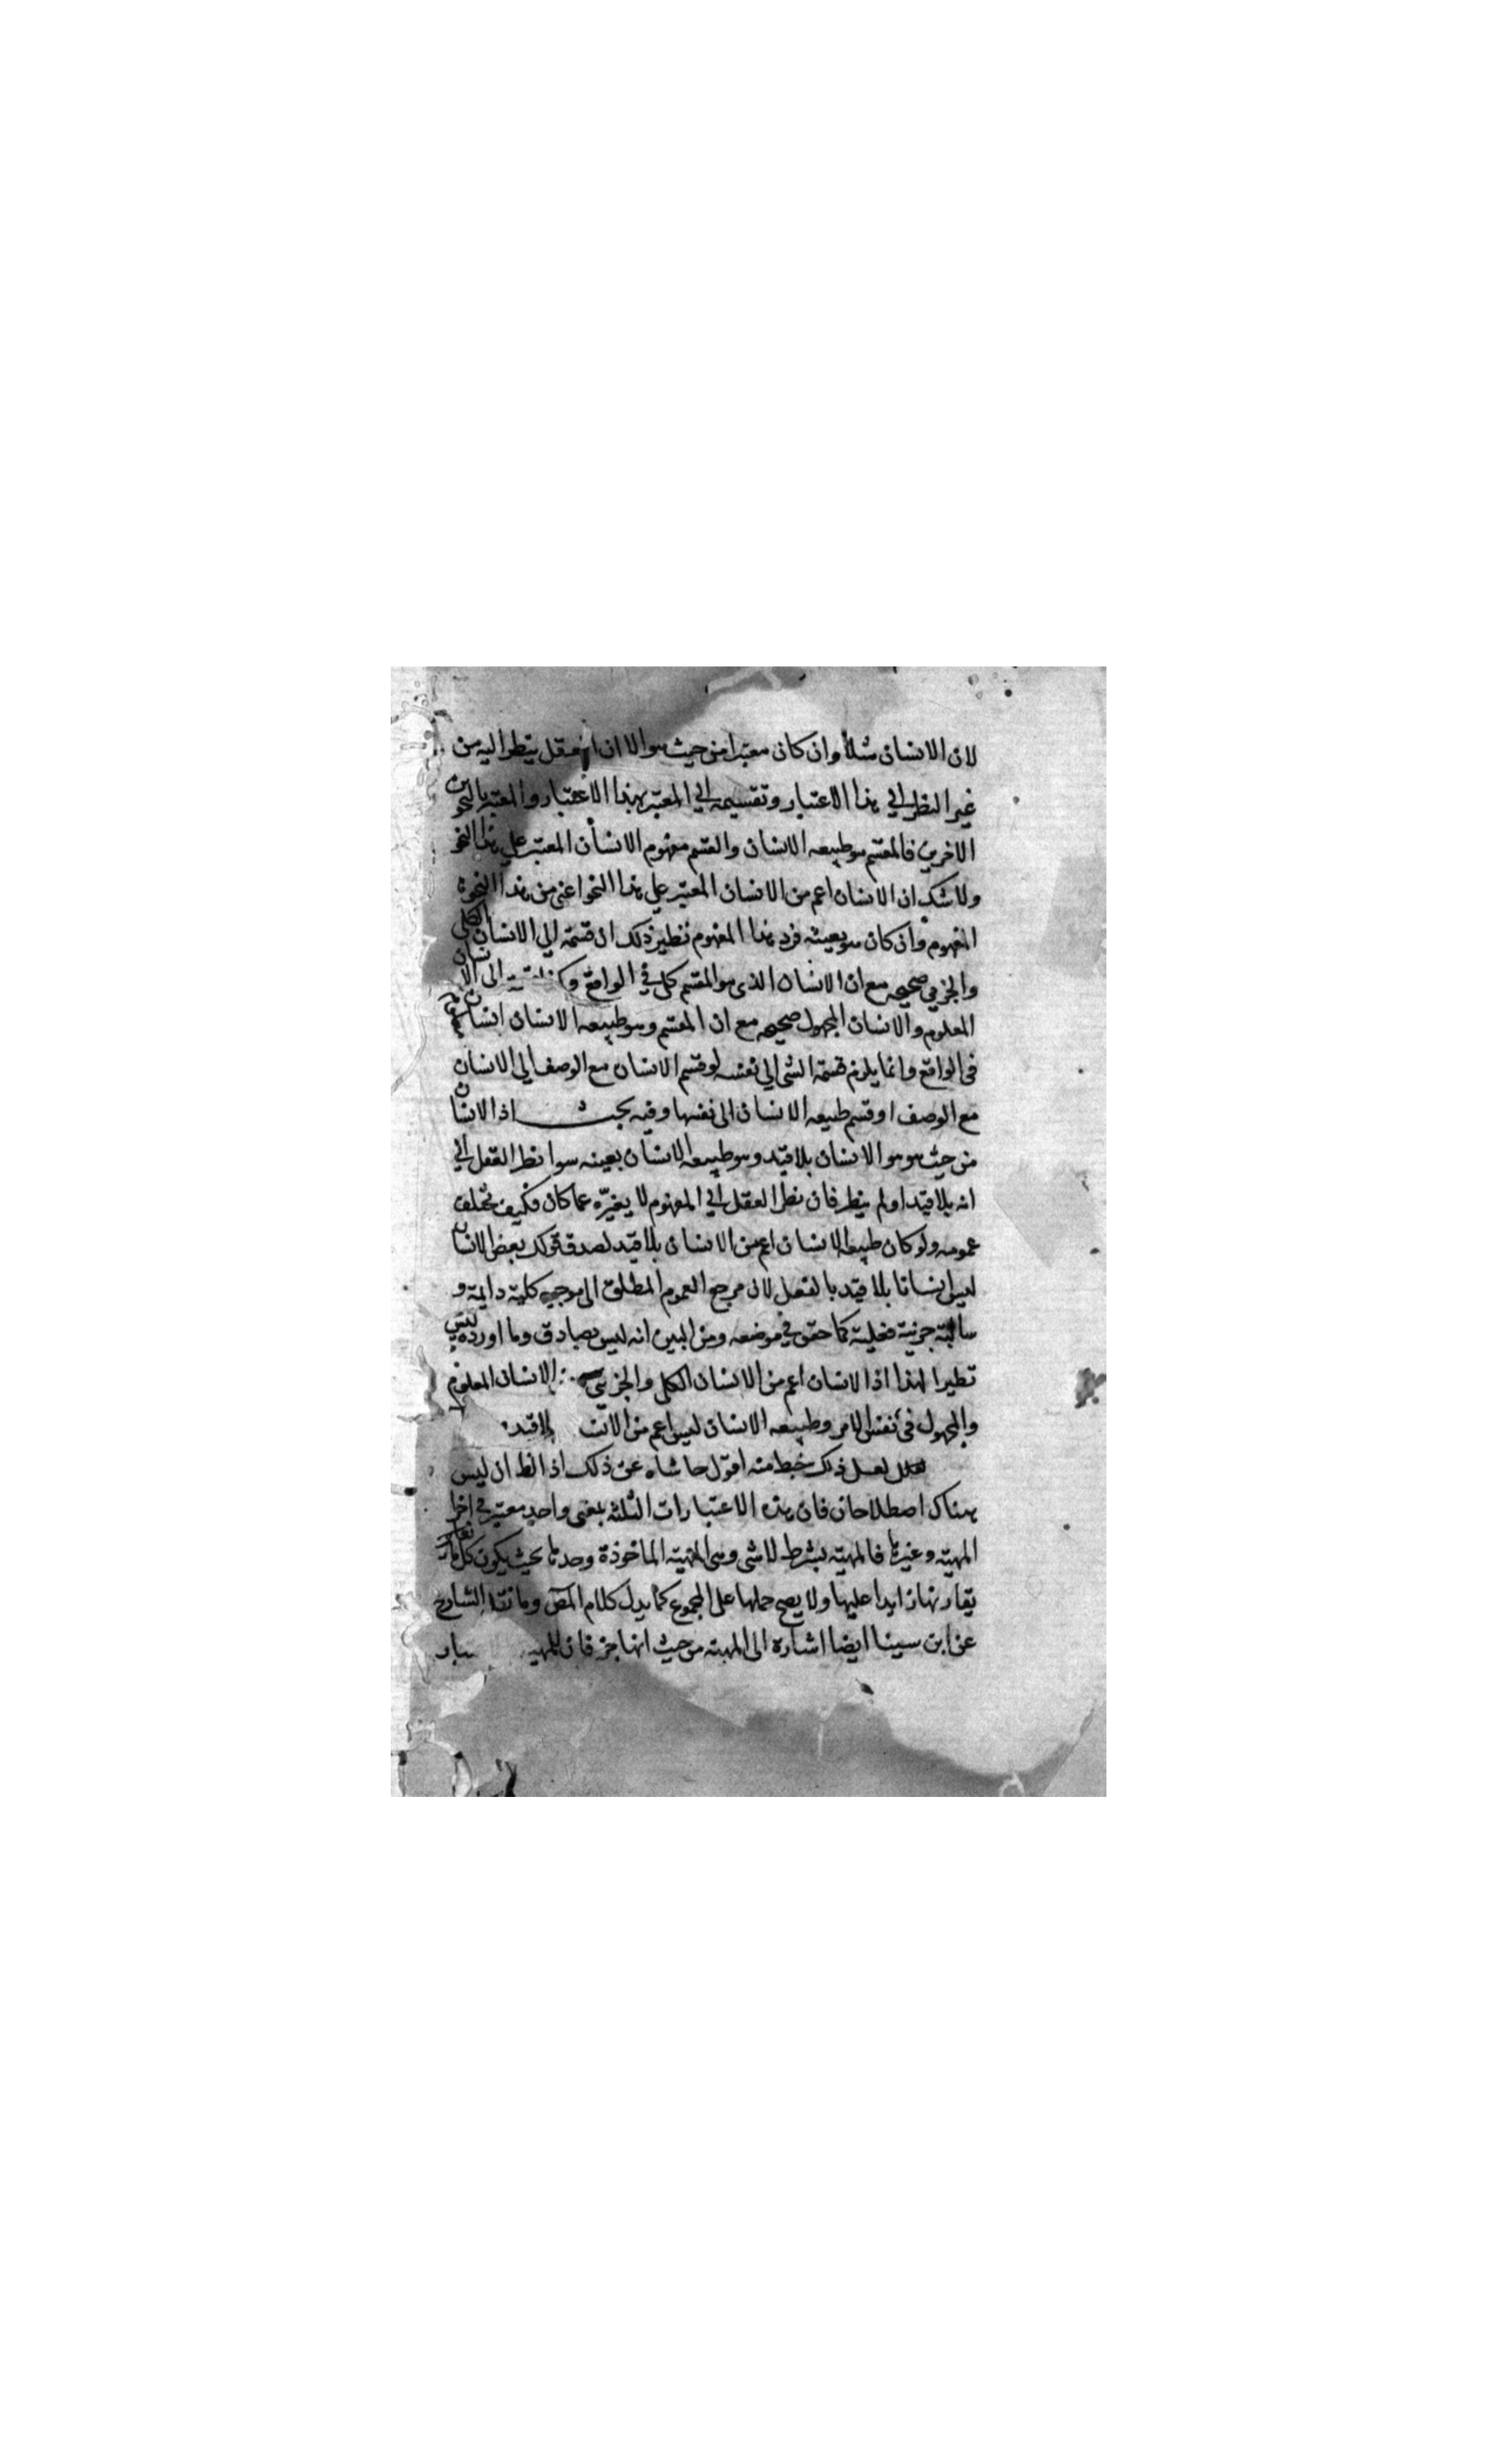 لان الانسان مثلا وان كان معتبرا من حيث هو الا ان العقل ينظر اليه من
غير النظر الي هذا الاعتبار وتقسيمه الي المعتبر بهذا الاعتبار والمعتبر بالنحوين
الاخرين فالمقسم هو طبيعه الانسان والقسم مفهوم الانسان المعتبر علي هذا النحو
ولا شك ان الانسان اعم من الانسان المعتبر علي هذا النحو اعني من هذا
المفهوم وان كان هو بعينه فرد هذا المفهوم نظير ذلك ان قسمة الي الانسان الكلي
والجزيي صحيحه مع ان الانسان الذي هو المقسم كلي في الواقع وكذا الى الانسان
المعلوم والانسان المجهول صحيحه مع ان المقسم وهو طبيعه الانسان انسان معلوم
في الواقع وانما يلزم قسمة الشي الي نفسه لو قسم الانسان مع الوصف الي الانسان
مع الوصف او قسم طبيعه الانسان الى نفسها وفيه بحث اذ الانسان
من حيث هو هو الانسان بلا قيد وهو طبيعه الانسان بعينه سوا نظر العقل الي
انه بلا قيد او لم ينظر فان نظر العقل الي المفهوم لا يغيّره عما كان فكيف تخلف
عمومه ولو كان طبيعه الانسان اعم من الانسان بلا قيد لصدق قولك بعض الانسان
ليس انسانا بلا قيد بالفعل لان مرجع العموم المطلق الى موجبه كلية دايمة و
سالبة جزيية فعلية كما حقق في موضعه ومن البين انه ليس بصادق وما اورده ليس
نظيرا لهذا اذ الانسان اعم من الانسان الكلي والجزيي الانسان المعلوم
والمجهول في نفس الامر وطبيعه الانسان ليس اعم من بلا قيد
لعل ذلك خبط منه اقول حاشاه عن ذلك اذ الظ ان ليس
هناك اصطلاحان فان هذه الاعتبارات الثلثة بمعنى واحد معتبر في اجزا
المهية وغيرها فالمهية بشرط لا شي وهي المهية الماخوذة وحدها بحيث يكون كل ما
يقارنها زايدا عليها ولا يصح حملها على المجموع كما يدل كلام المص وما نقله الشارح
عن ابن سينا ايضا اشارة الى المهية من حيث انها جز فان للمهية